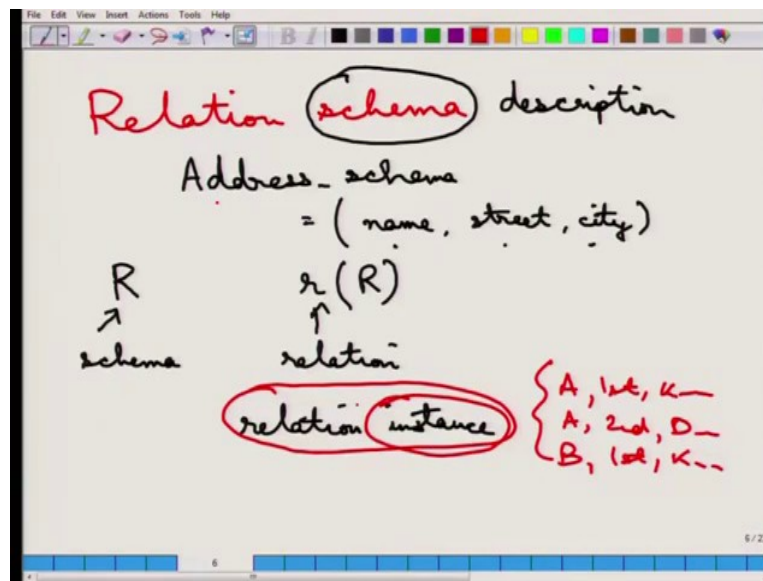 File Edit View Insert Actions Tools Help
Relation schema description
Address_schema
= ( name, street, city )
R r ( R )
schema relation
relation instance
A, 1st, K__
A, 2nd, D__
B, 1st, K__
6 / 2
6